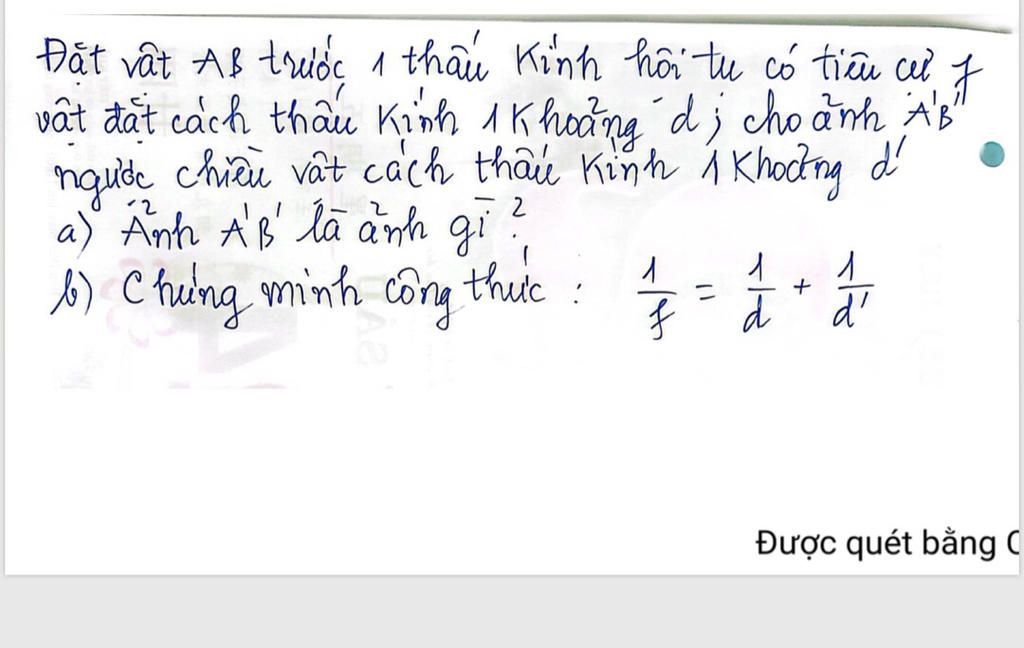 Đặt vật AB trước 1 thấu kính hội tụ có tiêu cự f
vật đặt cách thấu kính 1 khoảng d; cho ảnh A'B'
ngược chiều vật cách thấu kính 1 khoảng d'
a) Ảnh A'B' là ảnh gì?
b) Chứng minh công thức : 1/f = 1/d + 1/d'
Được quét bằng C